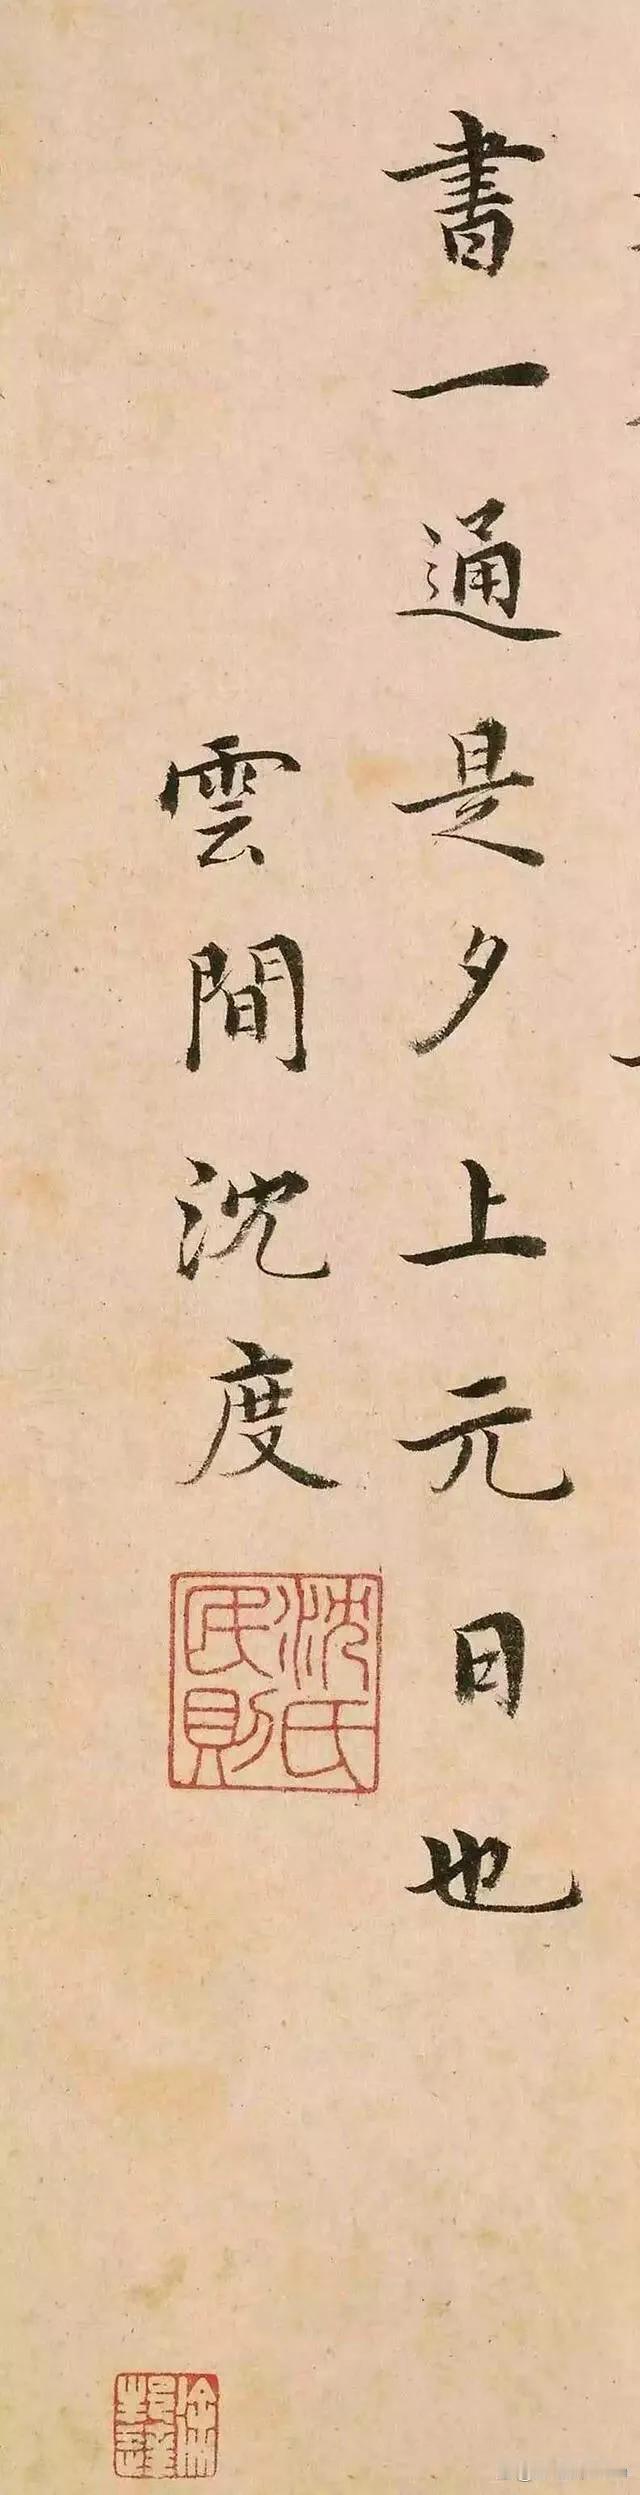 書一通是夕上元日也
雲間沈度
沈氏民則